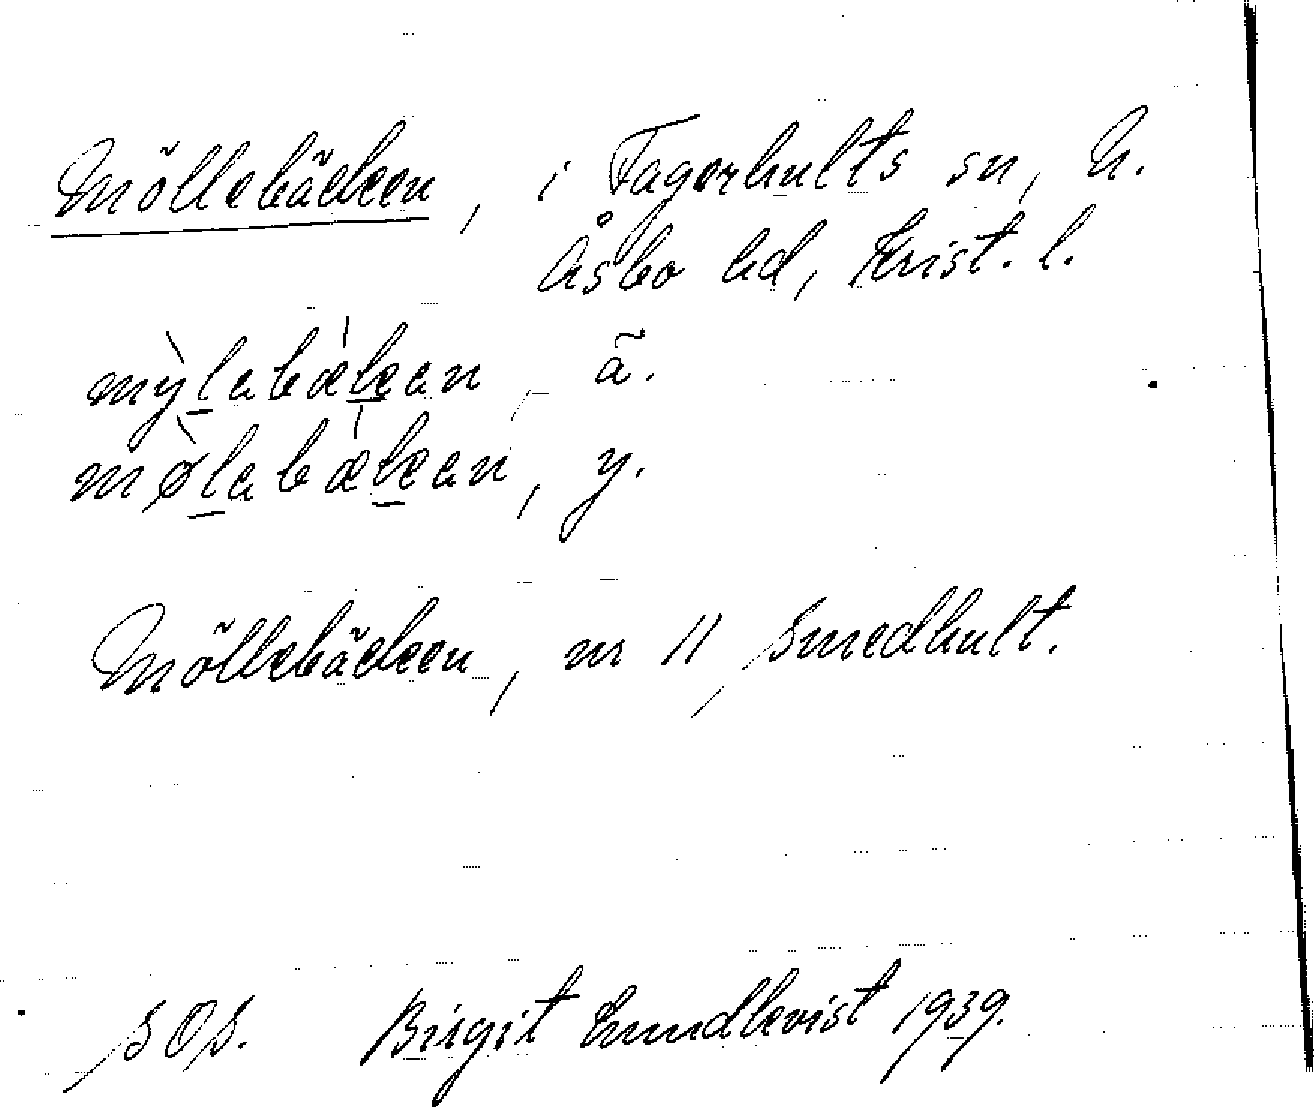 Möllebäcken, i Fagerhults sn, N.
Åsbo hd, Krist. l.
mỳlabækan, ä.
mø̀labækan, y.
Möllebäcken, nr 11, Smedhult.
SOS. Birgit Lundkvist 1939.